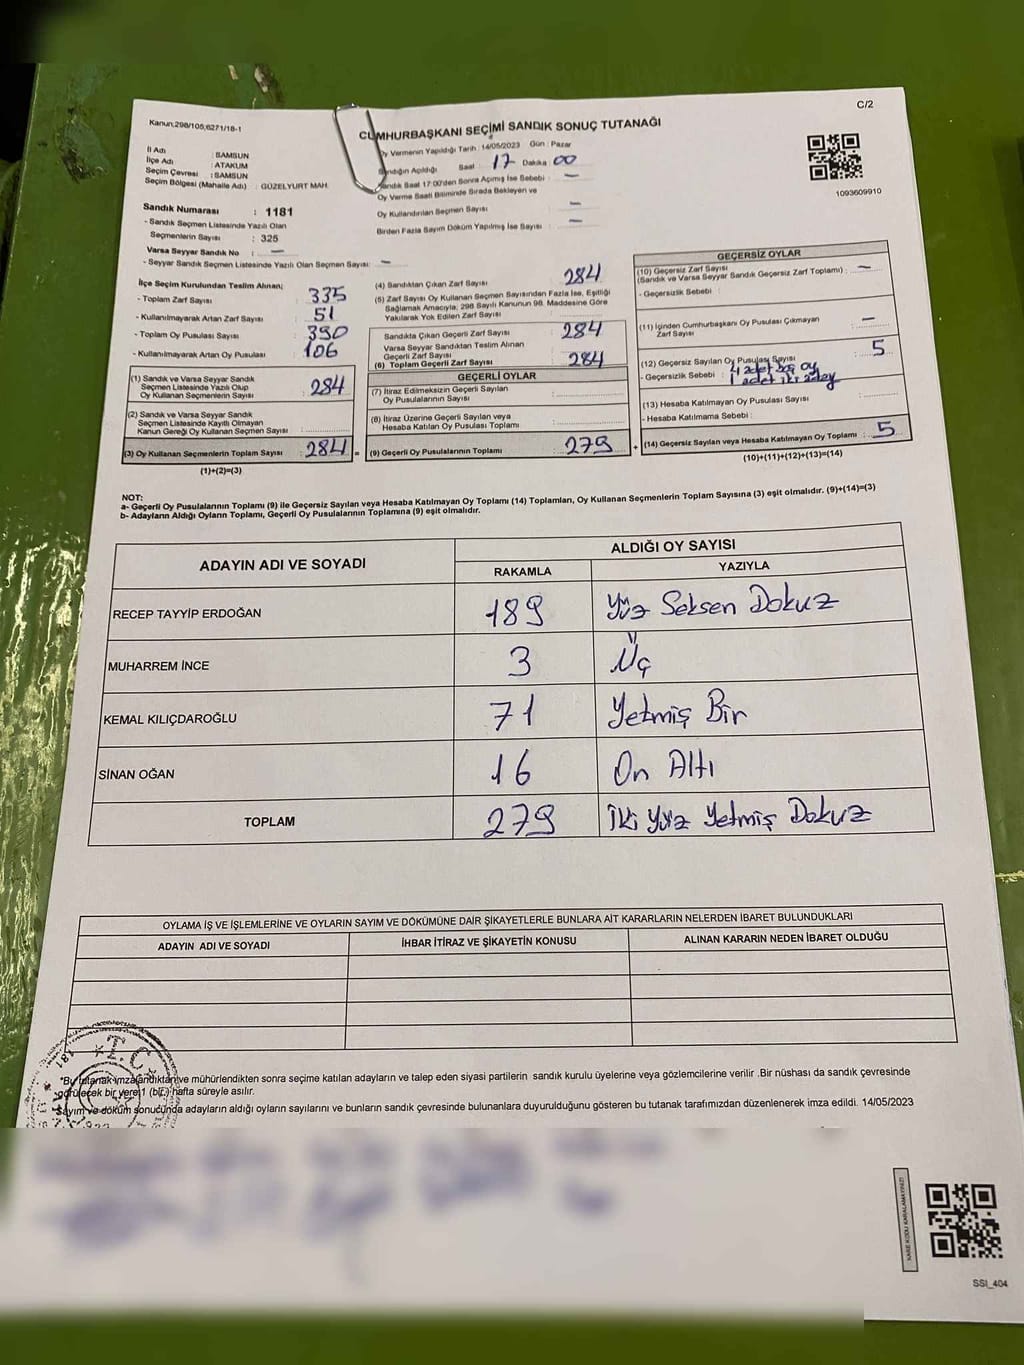 C/2
Kanun,298/105,6271/18-1
CUMHURBAŞKANI SEÇİMİ SANDIK SONUÇ TUTANAĞI
İl Adı : SAMSUN
İlçe Adı : ATAKUM
Seçim Çevresi : SAMSUN
Seçim Bölgesi (Mahalle Adı) : GÜZELYURT MAH.
Oy Vermenin Yapıldığı Tarih : 14/05/2023 Gün : Pazar
Sandığın Açıldığı Saat : 17 Dakika : 00
Sandık Saat 17:00'den Sonra Açımış İse Sebebi : —
Oy Verme Saati Bitiminde Sırada Bekleyen ve
Oy Kullandırılan Seçmen Sayısı : —
Birden Fazla Sayım Döküm Yapılmış İse Sayısı : —
1093609910
Sandık Numarası : 1181
- Sandık Seçmen Listesinde Yazılı Olan
Seçmenlerin Sayısı : 325
Varsa Seyyar Sandık No : —
- Seyyar Sandık Seçmen Listesinde Yazılı Olan Seçmen Sayısı: —
İlçe Seçim Kurulundan Teslim Alınan;
- Toplam Zarf Sayısı : 335
- Kullanılmayarak Artan Zarf Sayısı : 51
- Toplam Oy Pusulası Sayısı : 390
- Kullanılmayarak Artan Oy Pusulası : 106
(1) Sandık ve Varsa Seyyar Sandık
Seçmen Listesinde Yazılı Olup
Oy Kullanan Seçmenlerin Sayısı : 284
(2) Sandık ve Varsa Seyyar Sandık
Seçmen Listesinde Kayıtlı Olmayan
Kanun Gereği Oy Kullanan Seçmen Sayısı :
(3) Oy Kullanan Seçmenlerin Toplam Sayısı : 284 =
(1)+(2)=(3)
(4) Sandıktan Çıkan Zarf Sayısı : 284
(5) Zarf Sayısı Oy Kullanan Seçmen Sayısından Fazla İse, Eşitliği
Sağlamak Amacıyla; 298 Sayılı Kanunun 98. Maddesine Göre
Yakılarak Yok Edilen Zarf Sayısı :
Sandıkta Çıkan Geçerli Zarf Sayısı : 284
Varsa Seyyar Sandıktan Teslim Alınan
Geçerli Zarf Sayısı
(6) Toplam Geçerli Zarf Sayısı : 284
GEÇERLİ OYLAR
(7) İtiraz Edilmeksizin Geçerli Sayılan
Oy Pusulalarının Sayısı :
(8) İtiraz Üzerine Geçerli Sayılan veya
Hesaba Katılan Oy Pusulası Toplamı :
(9) Geçerli Oy Pusulalarının Toplamı : 279 +
GEÇERSİZ OYLAR
(10) Geçersiz Zarf Sayısı
(Sandık ve Varsa Seyyar Sandık Geçersiz Zarf Toplamı) : —
- Geçersizlik Sebebi :
(11) İçinden Cumhurbaşkanı Oy Pusulası Çıkmayan
Zarf Sayısı : —
(12) Geçersiz Sayılan Oy Pusulası Sayısı : 5
- Geçersizlik Sebebi : 4 adet boş oy
1 adet iki aday
(13) Hesaba Katılmayan Oy Pusulası Sayısı :
- Hesaba Katılmama Sebebi :
(14) Geçersiz Sayılan veya Hesaba Katılmayan Oy Toplamı : 5
(10)+(11)+(12)+(13)=(14)
NOT:
a- Geçerli Oy Pusulalarının Toplamı (9) ile Geçersiz Sayılan veya Hesaba Katılmayan Oy Toplamı (14) Toplamları, Oy Kullanan Seçmenlerin Toplam Sayısına (3) eşit olmalıdır. (9)+(14)=(3)
b- Adayların Aldığı Oyların Toplamı, Geçerli Oy Pusulalarının Toplamına (9) eşit olmalıdır.
ADAYIN ADI VE SOYADI
ALDIĞI OY SAYISI
RAKAMLA YAZIYLA
RECEP TAYYİP ERDOĞAN 189 Yüz Seksen Dokuz
MUHARREM İNCE 3 Üç
KEMAL KILIÇDAROĞLU 71 Yetmiş Bir
SİNAN OĞAN 16 On Altı
TOPLAM 279 İki Yüz Yetmiş Dokuz
OYLAMA İŞ VE İŞLEMLERİNE VE OYLARIN SAYIM VE DÖKÜMÜNE DAİR ŞİKAYETLERLE BUNLARA AİT KARARLARIN NELERDEN İBARET BULUNDUKLARI
ADAYIN ADI VE SOYADI İHBAR İTİRAZ VE ŞİKAYETİN KONUSU ALINAN KARARIN NEDEN İBARET OLDUĞU
T.C
*Bu tutanak imzalandıktan ve mühürlendikten sonra seçime katılan adayların ve talep eden siyasi partilerin sandık kurulu üyelerine veya gözlemcilerine verilir .Bir nüshası da sandık çevresinde
görülecek bir yere 1 (bir) hafta süreyle asılır.
Sayım ve döküm sonucunda adayların aldığı oyların sayılarını ve bunların sandık çevresinde bulunanlara duyurulduğunu gösteren bu tutanak tarafımızdan düzenlenerek imza edildi. 14/05/2023
KARE KODU KARALAMAYINIZ!
SSI_404